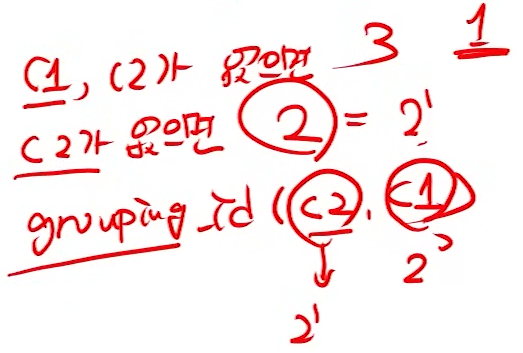 C1, C2가 없으면 3 1
C2가 없으면 2 = 2¹
grouping_id (C2, C1)
2⁰
2¹